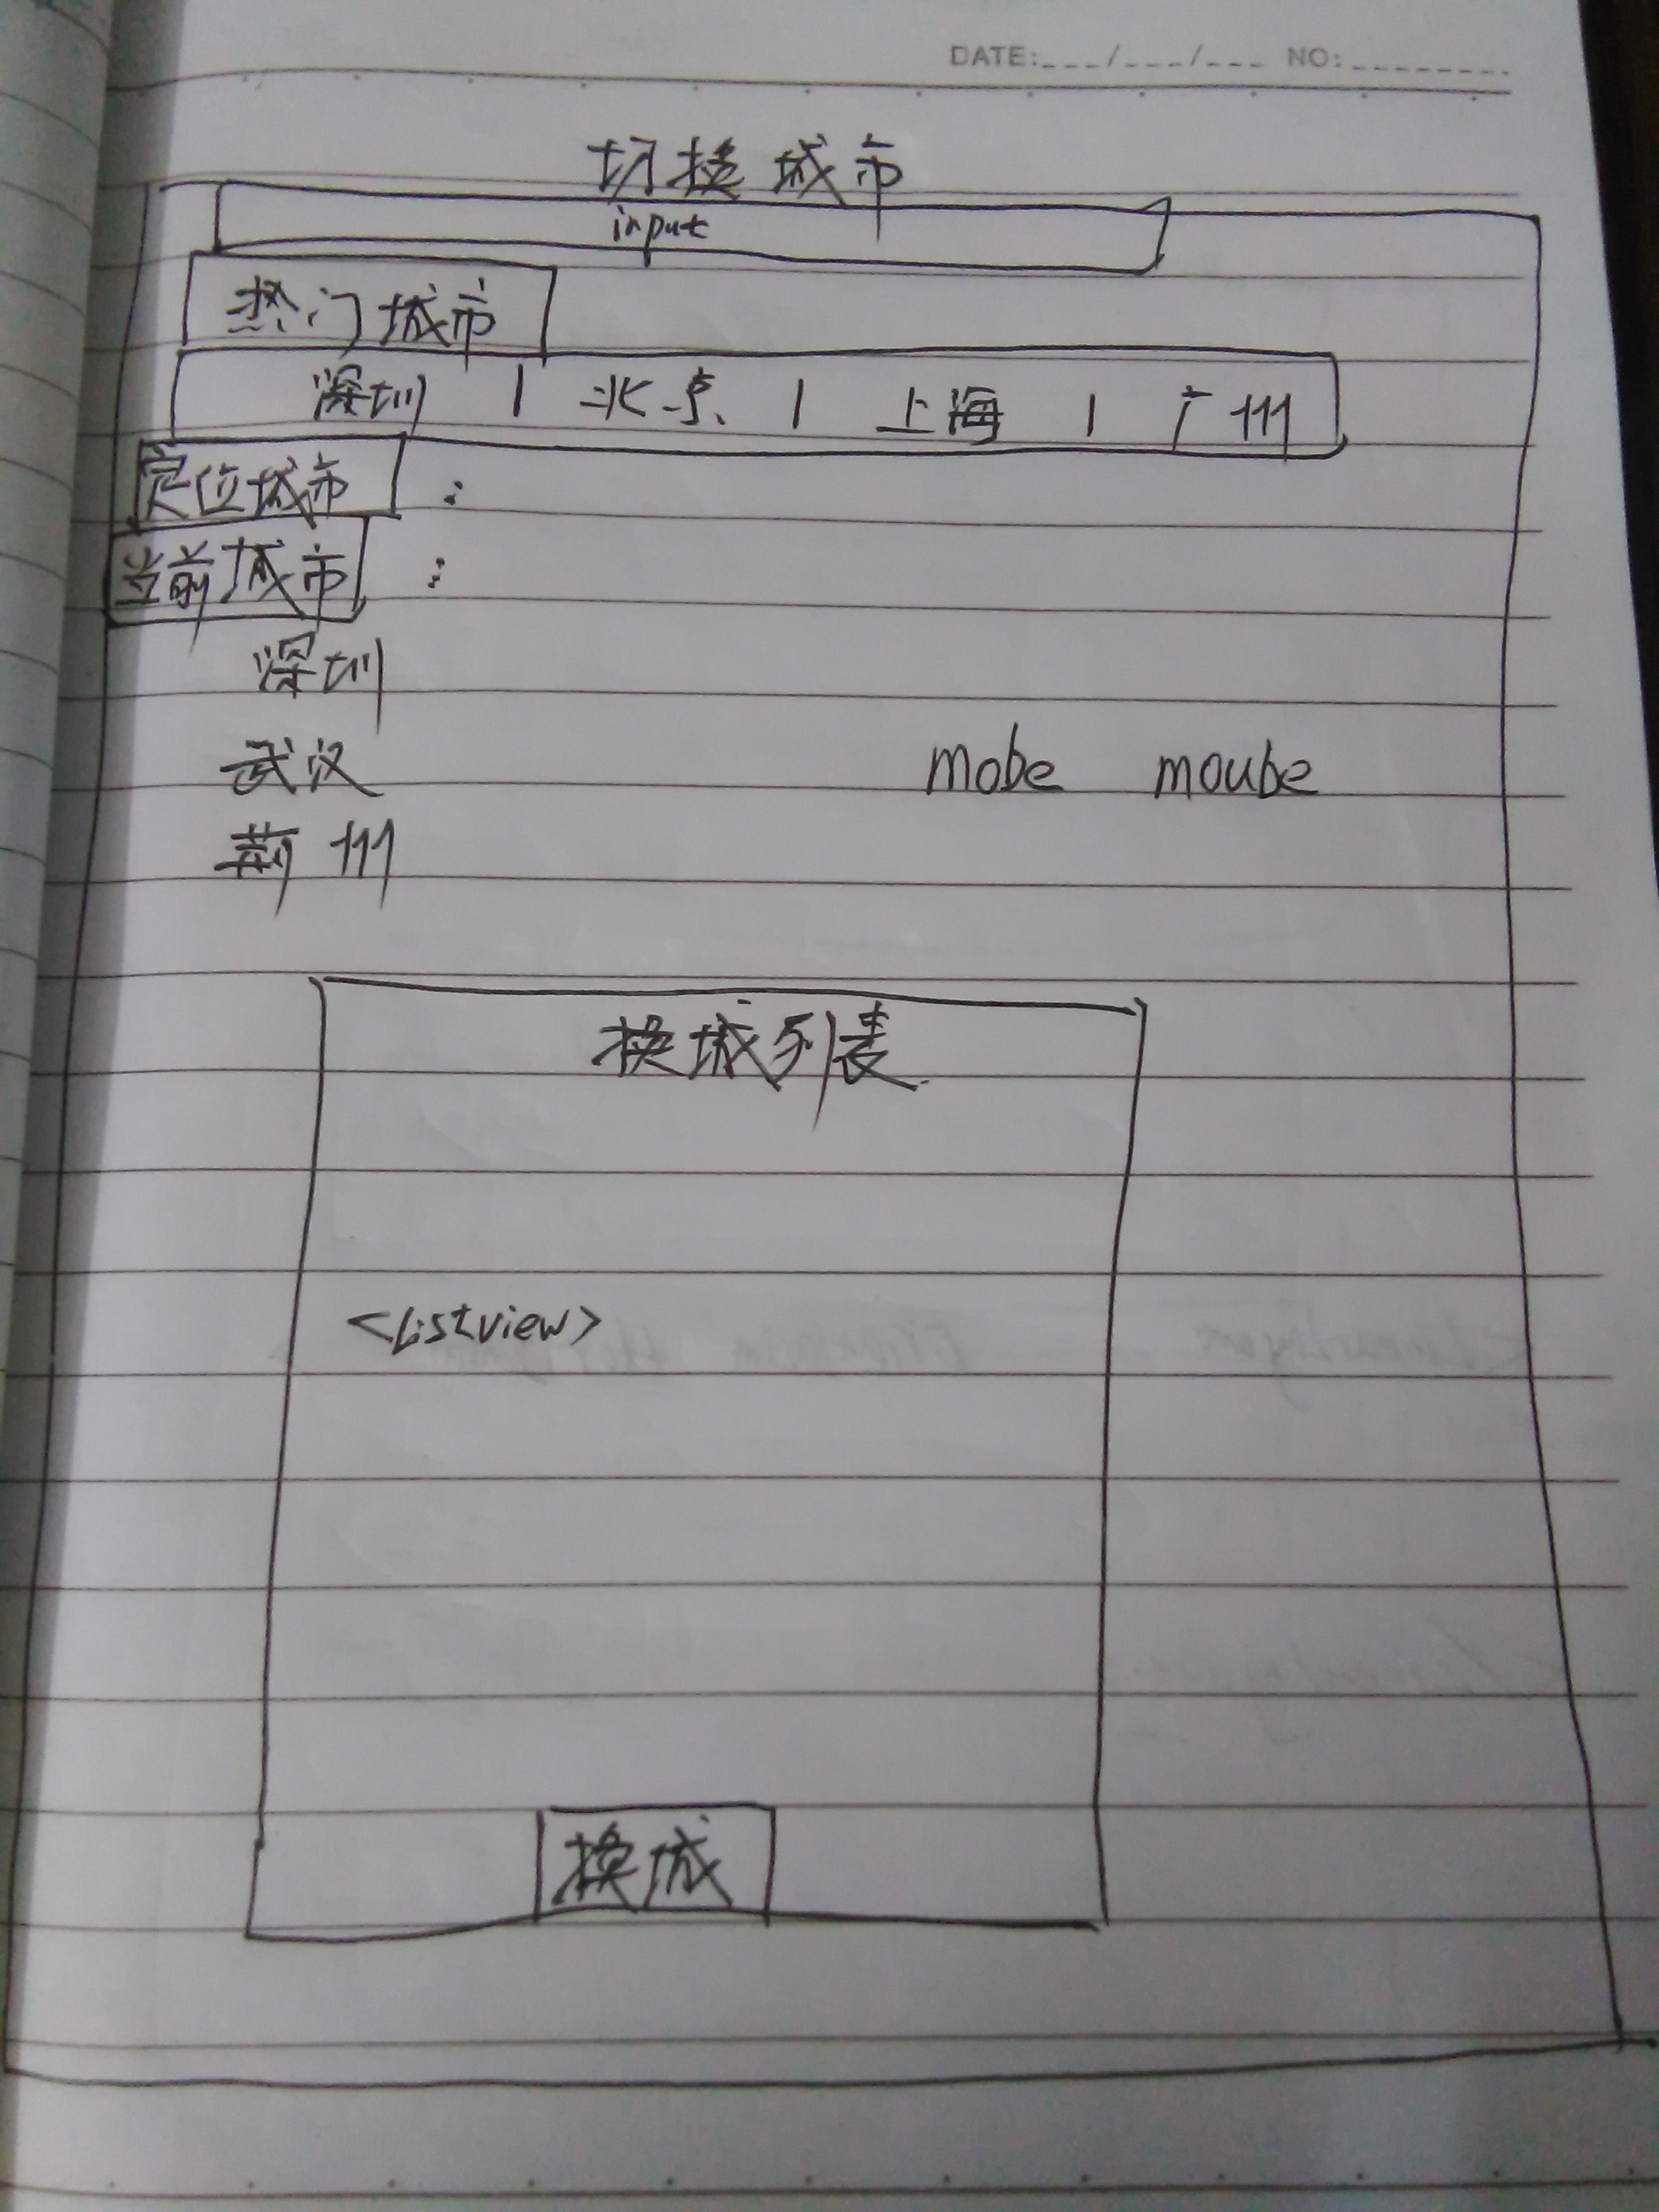 DATE:___/___/___ NO:________
切换城市
input
热门城市
深圳 | 北京 | 上海 | 广州
定位城市 :
当前城市 :
深圳
武汉 mobe moube
荆州
换城列表
<Listview>
换城